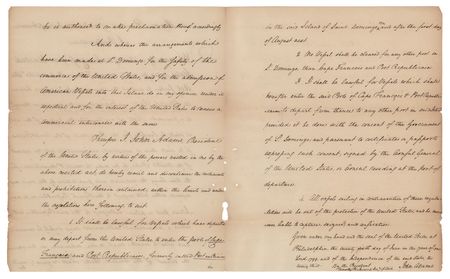 he is authorized to make proclamation thereof accordingly
And whereas the arrangements which
have been made at St. Domingo for the safety of the
commerce of the United States, and for the admission of
American Vessels into that Island do in my opinion render it
expedient and for the interest of the United States to renew a
commercial intercourse with the same
Therefore I John Adams President
of the United States, by virtue of the powers vested in me by the
above recited act, do hereby remit and discontinue the restraints
and prohibitions therein contained, within the limits and under
the regulations here following to wit
1. It shall be lawful for Vessels which have departed
or may depart from the United States to enter the ports of Cape
Francois and Port Republicain, formerly called Port au Prince
in the said Island of Saint Domingo, on and after the first day
of August next
2. No Vessel shall be cleared for any other port in
St. Domingo than Cape Francois and Port Republicain
3. It shall be lawful for Vessels which shall
enter the said Ports of Cape Francois & Port Republi
cain to depart from thence to any other port in said Island
provided it be done with the consent of the Government
of St. Domingo and pursuant to certificates or passports
expressing such consent signed by the Consul General
of the United States or Consul residing at the port of
departure
4. All Vessels sailing in contravention of these regula
tions will be out of the protection of the United States and be more
over liable to capture seizure and confiscation
Given under my hand and the seal of the United States at
Philadelphia the twenty sixth day of June in the year of our
Lord 1799, and of the Independence of the said States, the
twenty third
By the President
John Adams